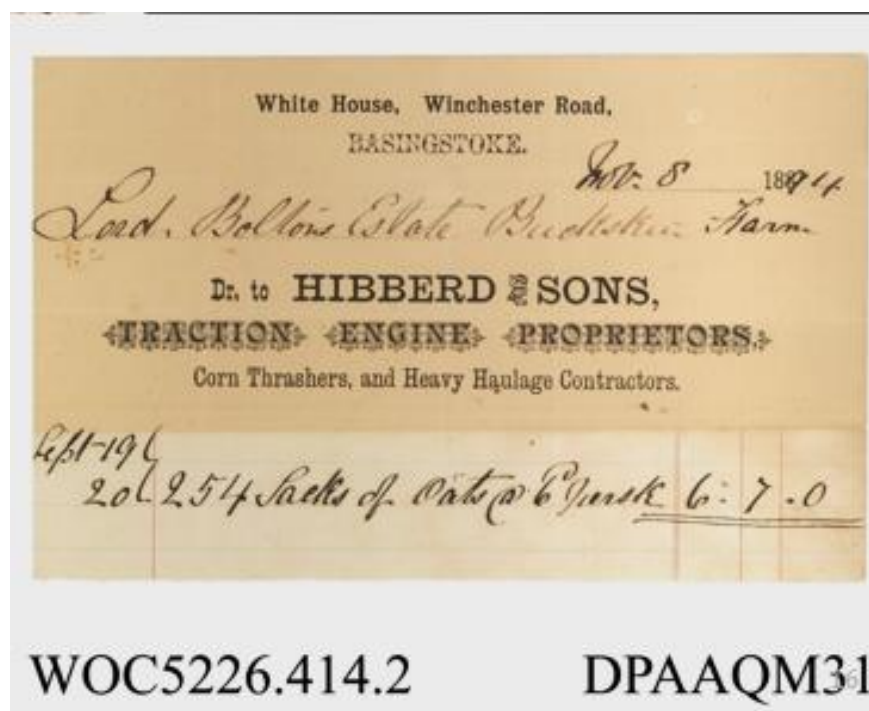 White House, Winchester Road,
BASINGSTOKE.
Nov. 8 1894
Lord. Boltons Estate Buckskin Farm
Dr. to HIBBERD AND SONS,
TRACTION ENGINE PROPRIETORS,
Corn Thrashers, and Heavy Haulage Contractors.
Sept 19
20 254 Sacks of Oats @ 6 per sk 6 : 7 . 0
WOC5226.414.2 DPAAQM31